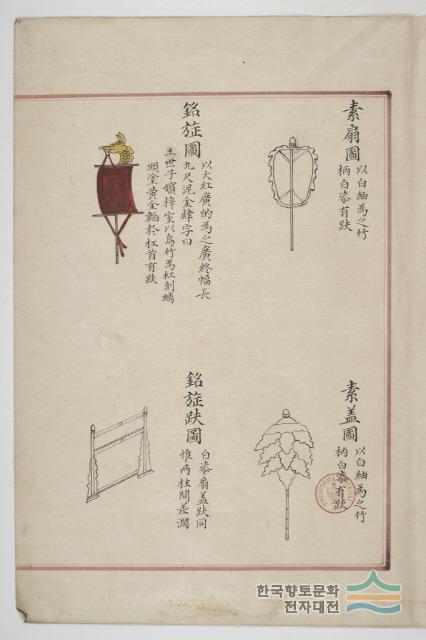 素扇圖
以白紬為之竹
柄白漆有趺
銘旌圖
以大紅廣的為之廣終幅長
九尺泥金肄字曰
王世子嬪梓室以烏竹為杠刻螭
頭塗黄金韜於杠首有趺
素盖圖
以白紬為之竹
柄白漆有趺
銘旌趺圖
白漆扇盖趺同
惟两柱間差濶
한국향토문화
전자대전